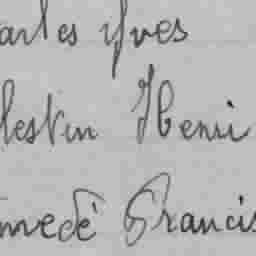 arles Yves
lestin Henri
médé Francis